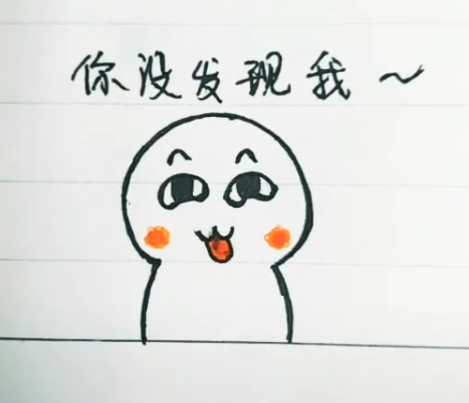 你没发现我～